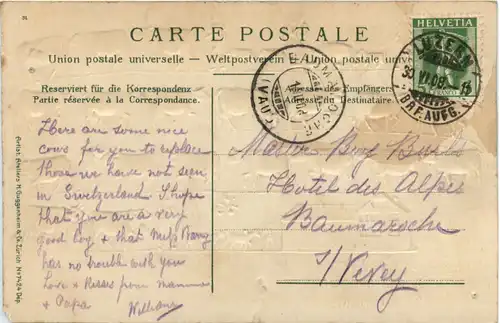 CARTE POSTALE
Union postale universelle — Weltpostverein — Unione postale univer
Reserviert für die Korrespondenz
Partie réservée à la Correspondance.
Adresse des Empfängers
Adresse du Destinataire
HELVETIA
LUZERN
BRF. AUFG.
BAUMAROCHE
(VAUD)
Here are some nice
cows for you to replace
those we have not seen
in Switzerland. I hope
that you are a very
good boy & that Miss
has no trouble with you
Love & kisses from mamma
& Papa
William
Master
Hotel des Alpes
Baumaroche
s/Vevey
Artist. Ateliers H. Guggenheim & Co. Zürich No 7424 Dép.